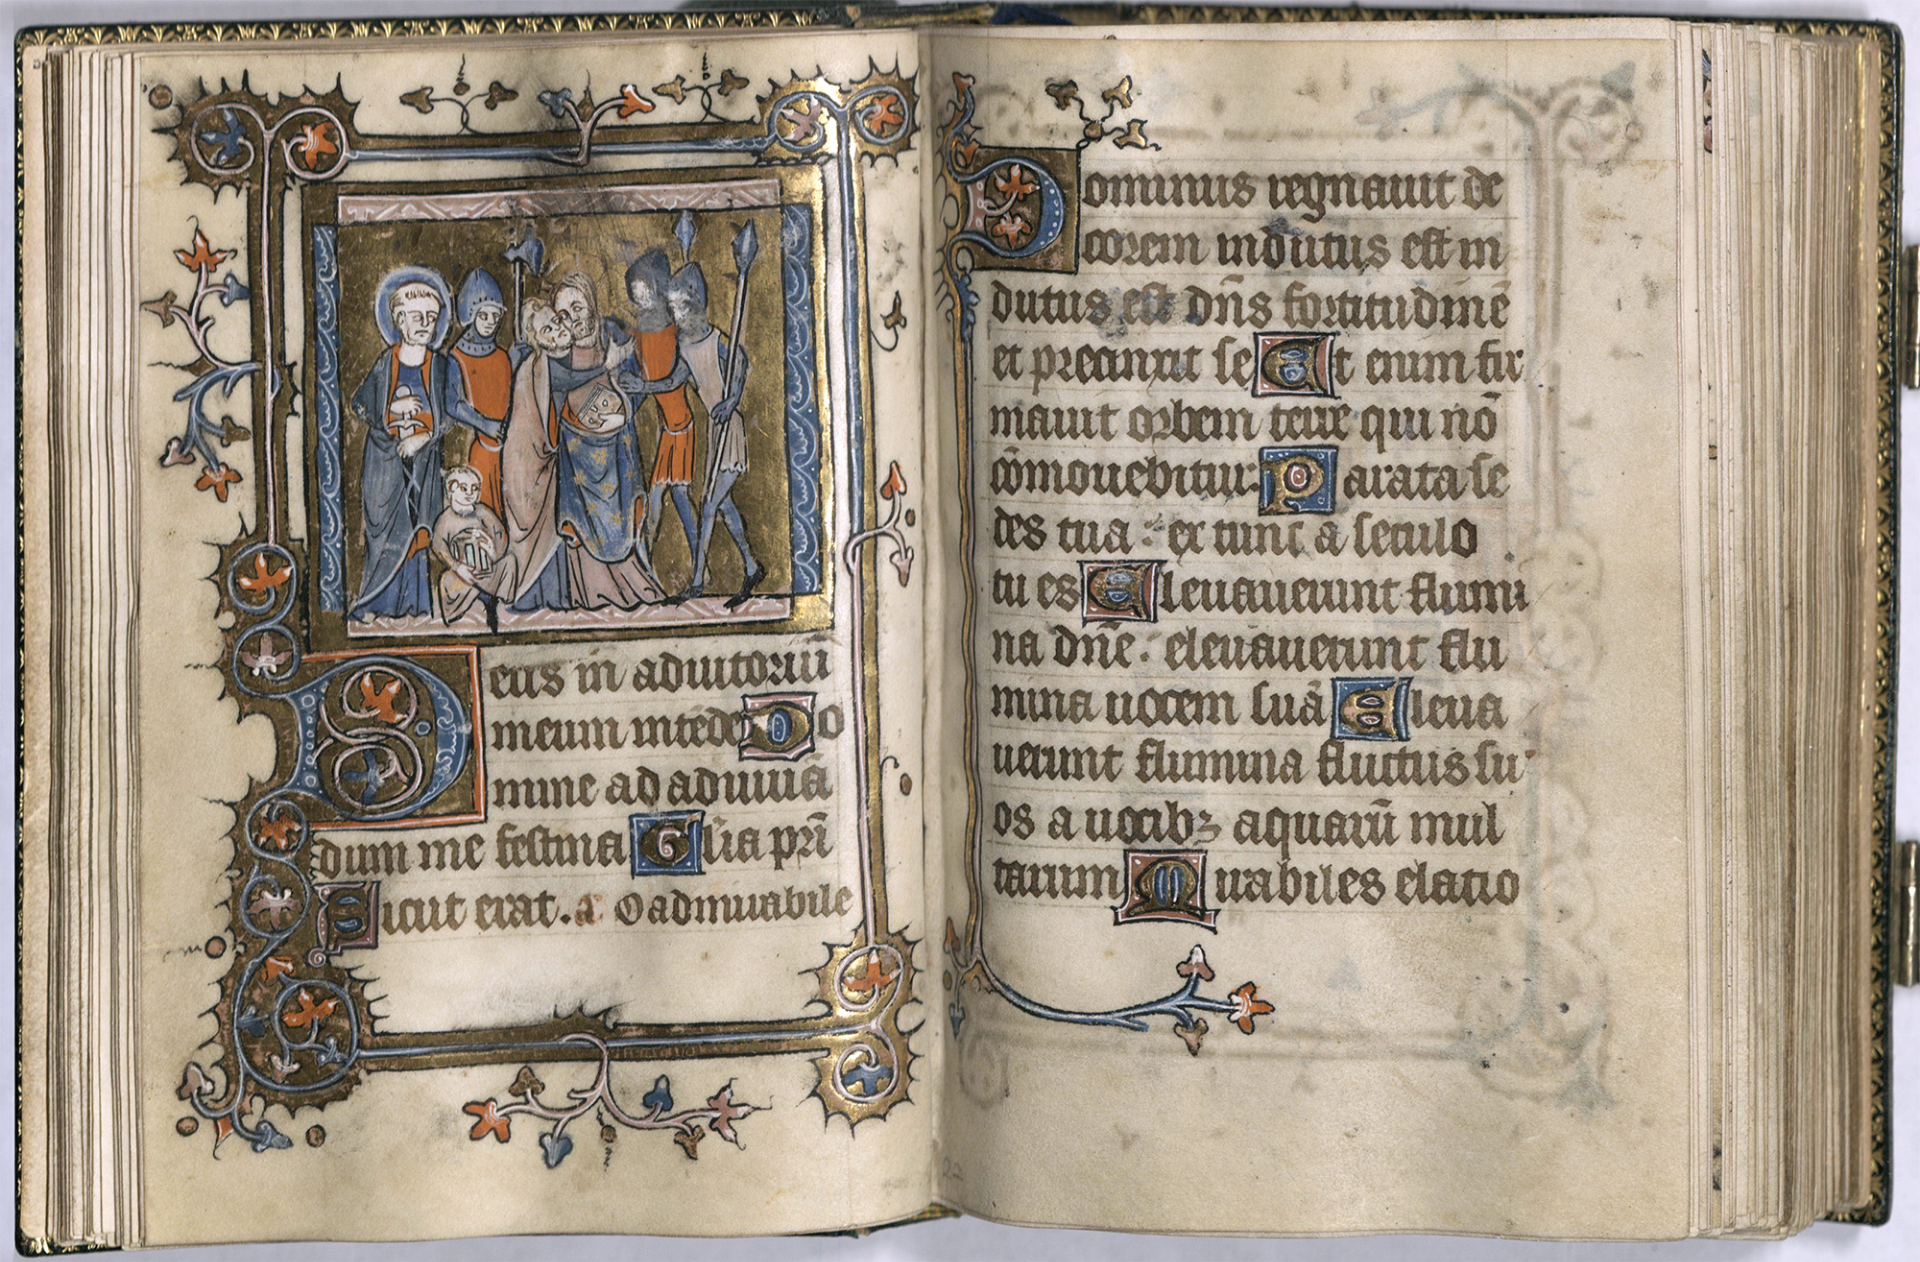 Deus in adiutoriū
meum intēde Do
mine ad adiuuā
dum me festina Gl'ia pr̄i
Sicut erat. a O admirabile
Dominus regnauit de
corem indutus est in
dutus est dn̄s fortitudinē
et precinxit se Et enim fir
mauit orbem terre qui nō
cōmouebitur: Parata se
des tua : ex tunc a seculo
tu es Eleuauerunt flumi
na dn̄e : eleuauerunt flu
mina uocem suā Eleua
uerunt flumina fluctus su
os a uocibꝫ aquarū mul
tarum Mirabiles elatio